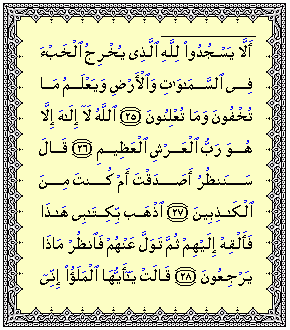 أَلَّا يَسْجُدُوا۟ لِلَّهِ ٱلَّذِى يُخْرِجُ ٱلْخَبْءَ
فِى ٱلسَّمَـٰوَٰتِ وَٱلْأَرْضِ وَيَعْلَمُ مَا
تُخْفُونَ وَمَا تُعْلِنُونَ ﴿٢٥﴾ ٱللَّهُ لَآ إِلَـٰهَ إِلَّا
هُوَ رَبُّ ٱلْعَرْشِ ٱلْعَظِيمِ ﴿٢٦﴾ قَالَ
سَنَنظُرُ أَصَدَقْتَ أَمْ كُنتَ مِنَ
ٱلْكَـٰذِبِينَ ﴿٢٧﴾ ٱذْهَب بِّكِتَـٰبِى هَـٰذَا
فَأَلْقِهْ إِلَيْهِمْ ثُمَّ تَوَلَّ عَنْهُمْ فَٱنظُرْ مَاذَا
يَرْجِعُونَ ﴿٢٨﴾ قَالَتْ يَـٰٓأَيُّهَا ٱلْمَلَؤُا۟ إِنِّىٓ